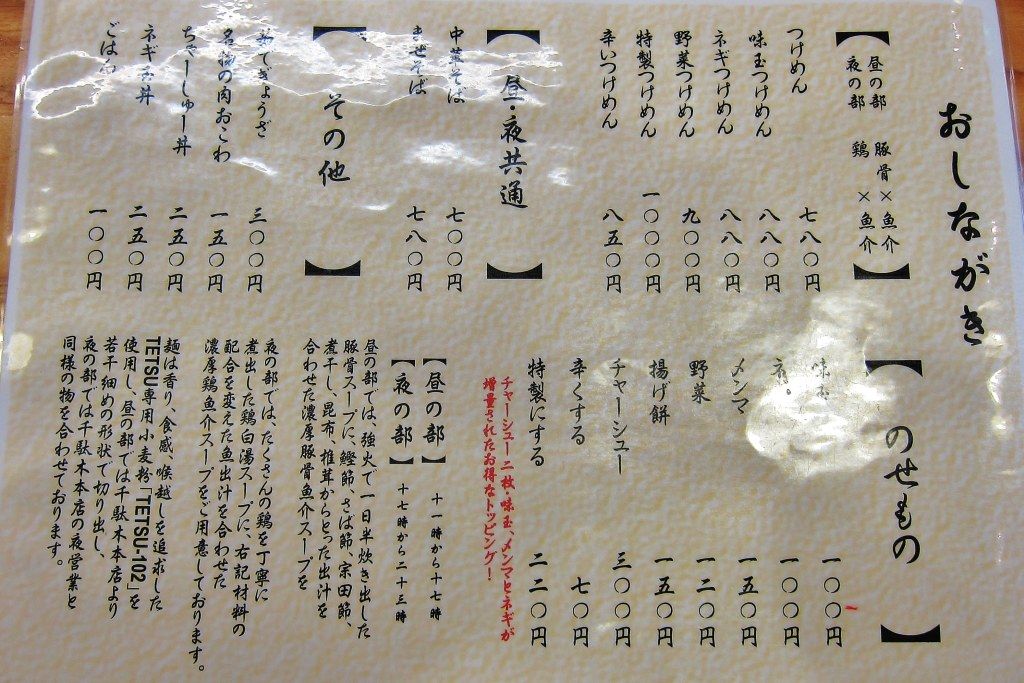 おしながき
【昼の部 豚骨×魚介
夜の部 鶏×魚介】
つけめん 七八〇円
味玉つけめん 八八〇円
ネギつけめん 八八〇円
野菜つけめん 九〇〇円
特製つけめん 一〇〇〇円
辛いつけめん 八五〇円
【昼・夜共通】
中華そば 七〇〇円
まぜそば 七八〇円
【その他】
茹でぎょうざ 三〇〇円
名物の肉おこわ 一五〇円
ちゃーしゅー丼 二五〇円
ネギ玉丼 二五〇円
ごはん 一〇〇円
【のせもの】
味玉 一〇〇円
一〇〇円
メンマ 一五〇円
野菜 一二〇円
揚げ餅 一五〇円
チャーシュー 三〇〇円
辛くする 七〇円
特製にする 二二〇円
チャーシュー二枚・味玉、メンマとネギが
増量されたお得なトッピング!
【昼の部】 十一時から十七時
【夜の部】 十七時から二十三時
昼の部では、強火で一日半炊き出した
豚骨スープに、鰹節、さば節、宗田節、
煮干し、昆布、椎茸からとった出汁を
合わせた濃厚豚骨魚介スープを
夜の部では、たくさんの鶏を丁寧に
煮出した鶏白湯スープに、右記材料の
配合を変えた魚出汁を合わせた
濃厚鶏魚介スープをご用意しております。
麺は香り、食感、喉越しを追求した
TETSU専用小麦粉「TETSU-102」を
使用し、昼の部では千駄木本店より
若干細めの形状で切り出し、
夜の部では千駄木本店の夜営業と
同様の物を合わせております。